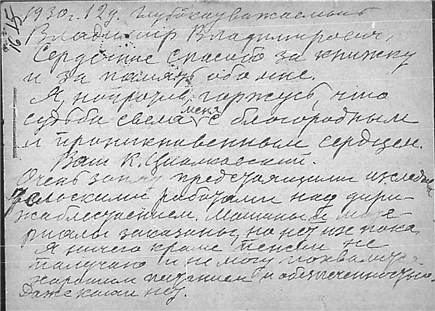 1930 г. 12 д. Глубокоуважаемый
Владимир Владимирович,
Сердечное спасибо за книжку
и за память обо мне.
Я, поистине, горжусь, что
судьба свела меня с благородным
и проникновенным сердцем.
Ваш К. Циолковский.
Очень занят предстоящими исследова-
тельскими работами над дири-
жаблестроением. Машины и мате-
риалы заказаны, но нет их пока.
Я ничего кроме пенсии не
получаю и не могу похвалиться
хорошим питанием и обеспеченностью.
Даже нет.